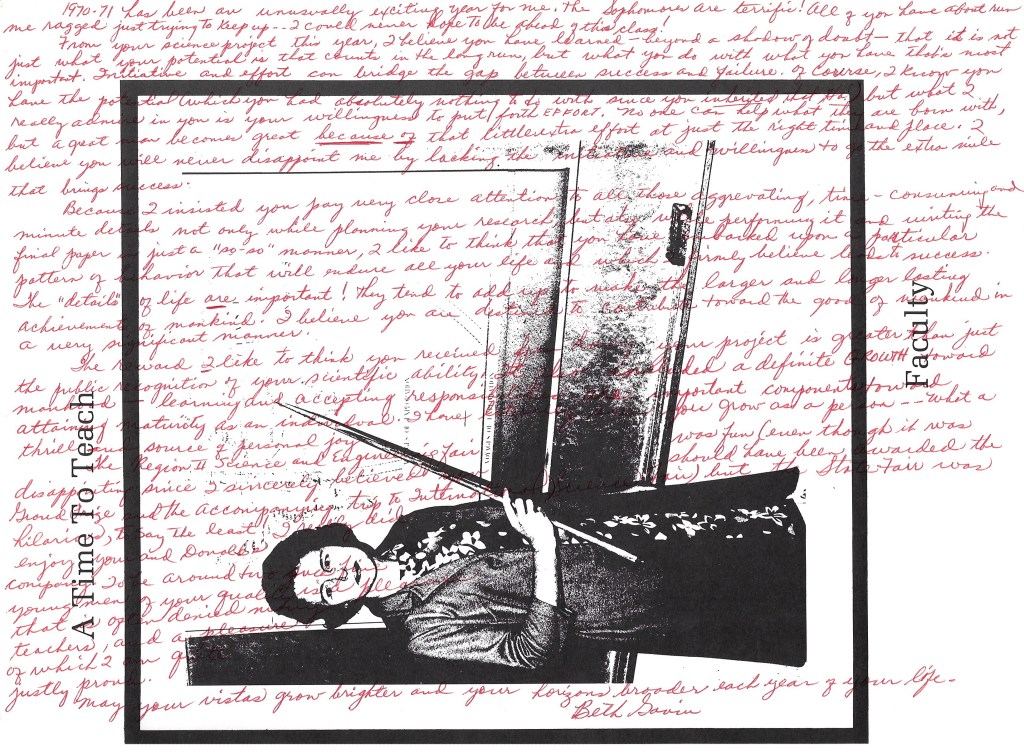 1970-71 has been an unusually exciting year for me. The Sophomores are terrific! All of you have about run
me ragged just trying to keep up -- I could never hope to be ahead of this class!
From your science project this year, I believe you have learned - beyond a shadow of doubt - that it is not
just what your potential is that counts in the long run, but what you do with what you have that's most
important. Initiative and effort can bridge the gap between success and failure. Of course, I know you
have the potential (which you had absolutely nothing to do with since you inherited it that way) but what I
really admire in you is your willingness to put forth EFFORT. No one can help what they are born with,
but a great man becomes great because of that little extra effort at just the right time and place. I
believe you will never disappoint me by lacking the initiative and willingness to go the extra mile
that brings success.
Because I insisted you pay very close attention to all those aggrevating, time-consuming and
minute details not only while planning your research but also while performing it and writing the
final paper in just a "so-so" manner, I like to think that you have embarked upon a particular
pattern of behavior that will endure all your life and which I firmly believe leads to success.
The "details" of life are important! They tend to add up to make the larger and longer lasting
achievements of mankind. I believe you are destined to contribute toward the good of mankind in
a very significant manner.
The reward I like to think you received from your project is greater than just
the public recognition of your scientific ability. It also included a definite GROWTH toward
manhood - learning and accepting responsibility important components toward
attaining maturity as an individual. I have you grow as a person -- What a
thrill and source of personal joy
The Region II Science and Engineering Fair was fun (even though it was
disappointing since I sincerely believed should have been awarded the
Grand Prize and the accompanying trip to International Science Fair) but the State Fair was
hilarious, to say the least. I really did
enjoy your and Donald's
company. To be around two
young men of your quality is a
that is often denied
teachers, and a pleasure
of which I am quite
justly proud.
May your vistas grow brighter and your horizons broader each year of your life.
Beth Gavin
A Time To Teach
Faculty